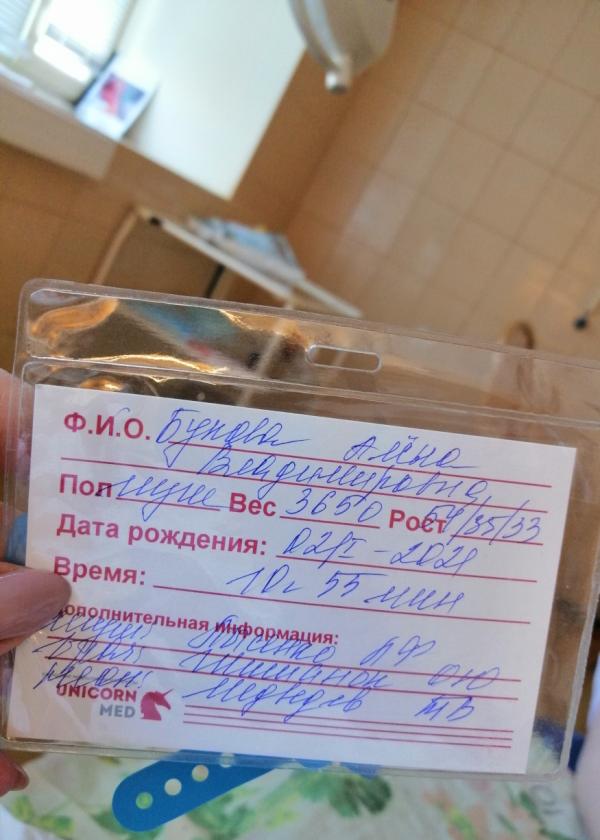 Ф.И.О. Букова Алёна
Владимировна
Пол муж Вес 3650 Рост 54/35/33
Дата рождения: 02/I-2021
Время: 10ч 55 мин
Дополнительная информация:
ПФ
Шишанок ОЮ
Медведев ТВ
UNICORN
MED